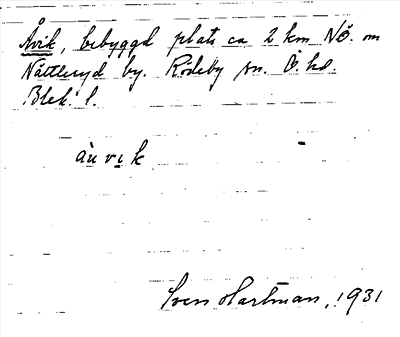 Åvik, bebyggd plats ca 2 km NÖ. om
Nättleryd by. Rödeby sn. Ö. hd.
Blek. l.
àu v ɩ k
Sven Hartman, 1931